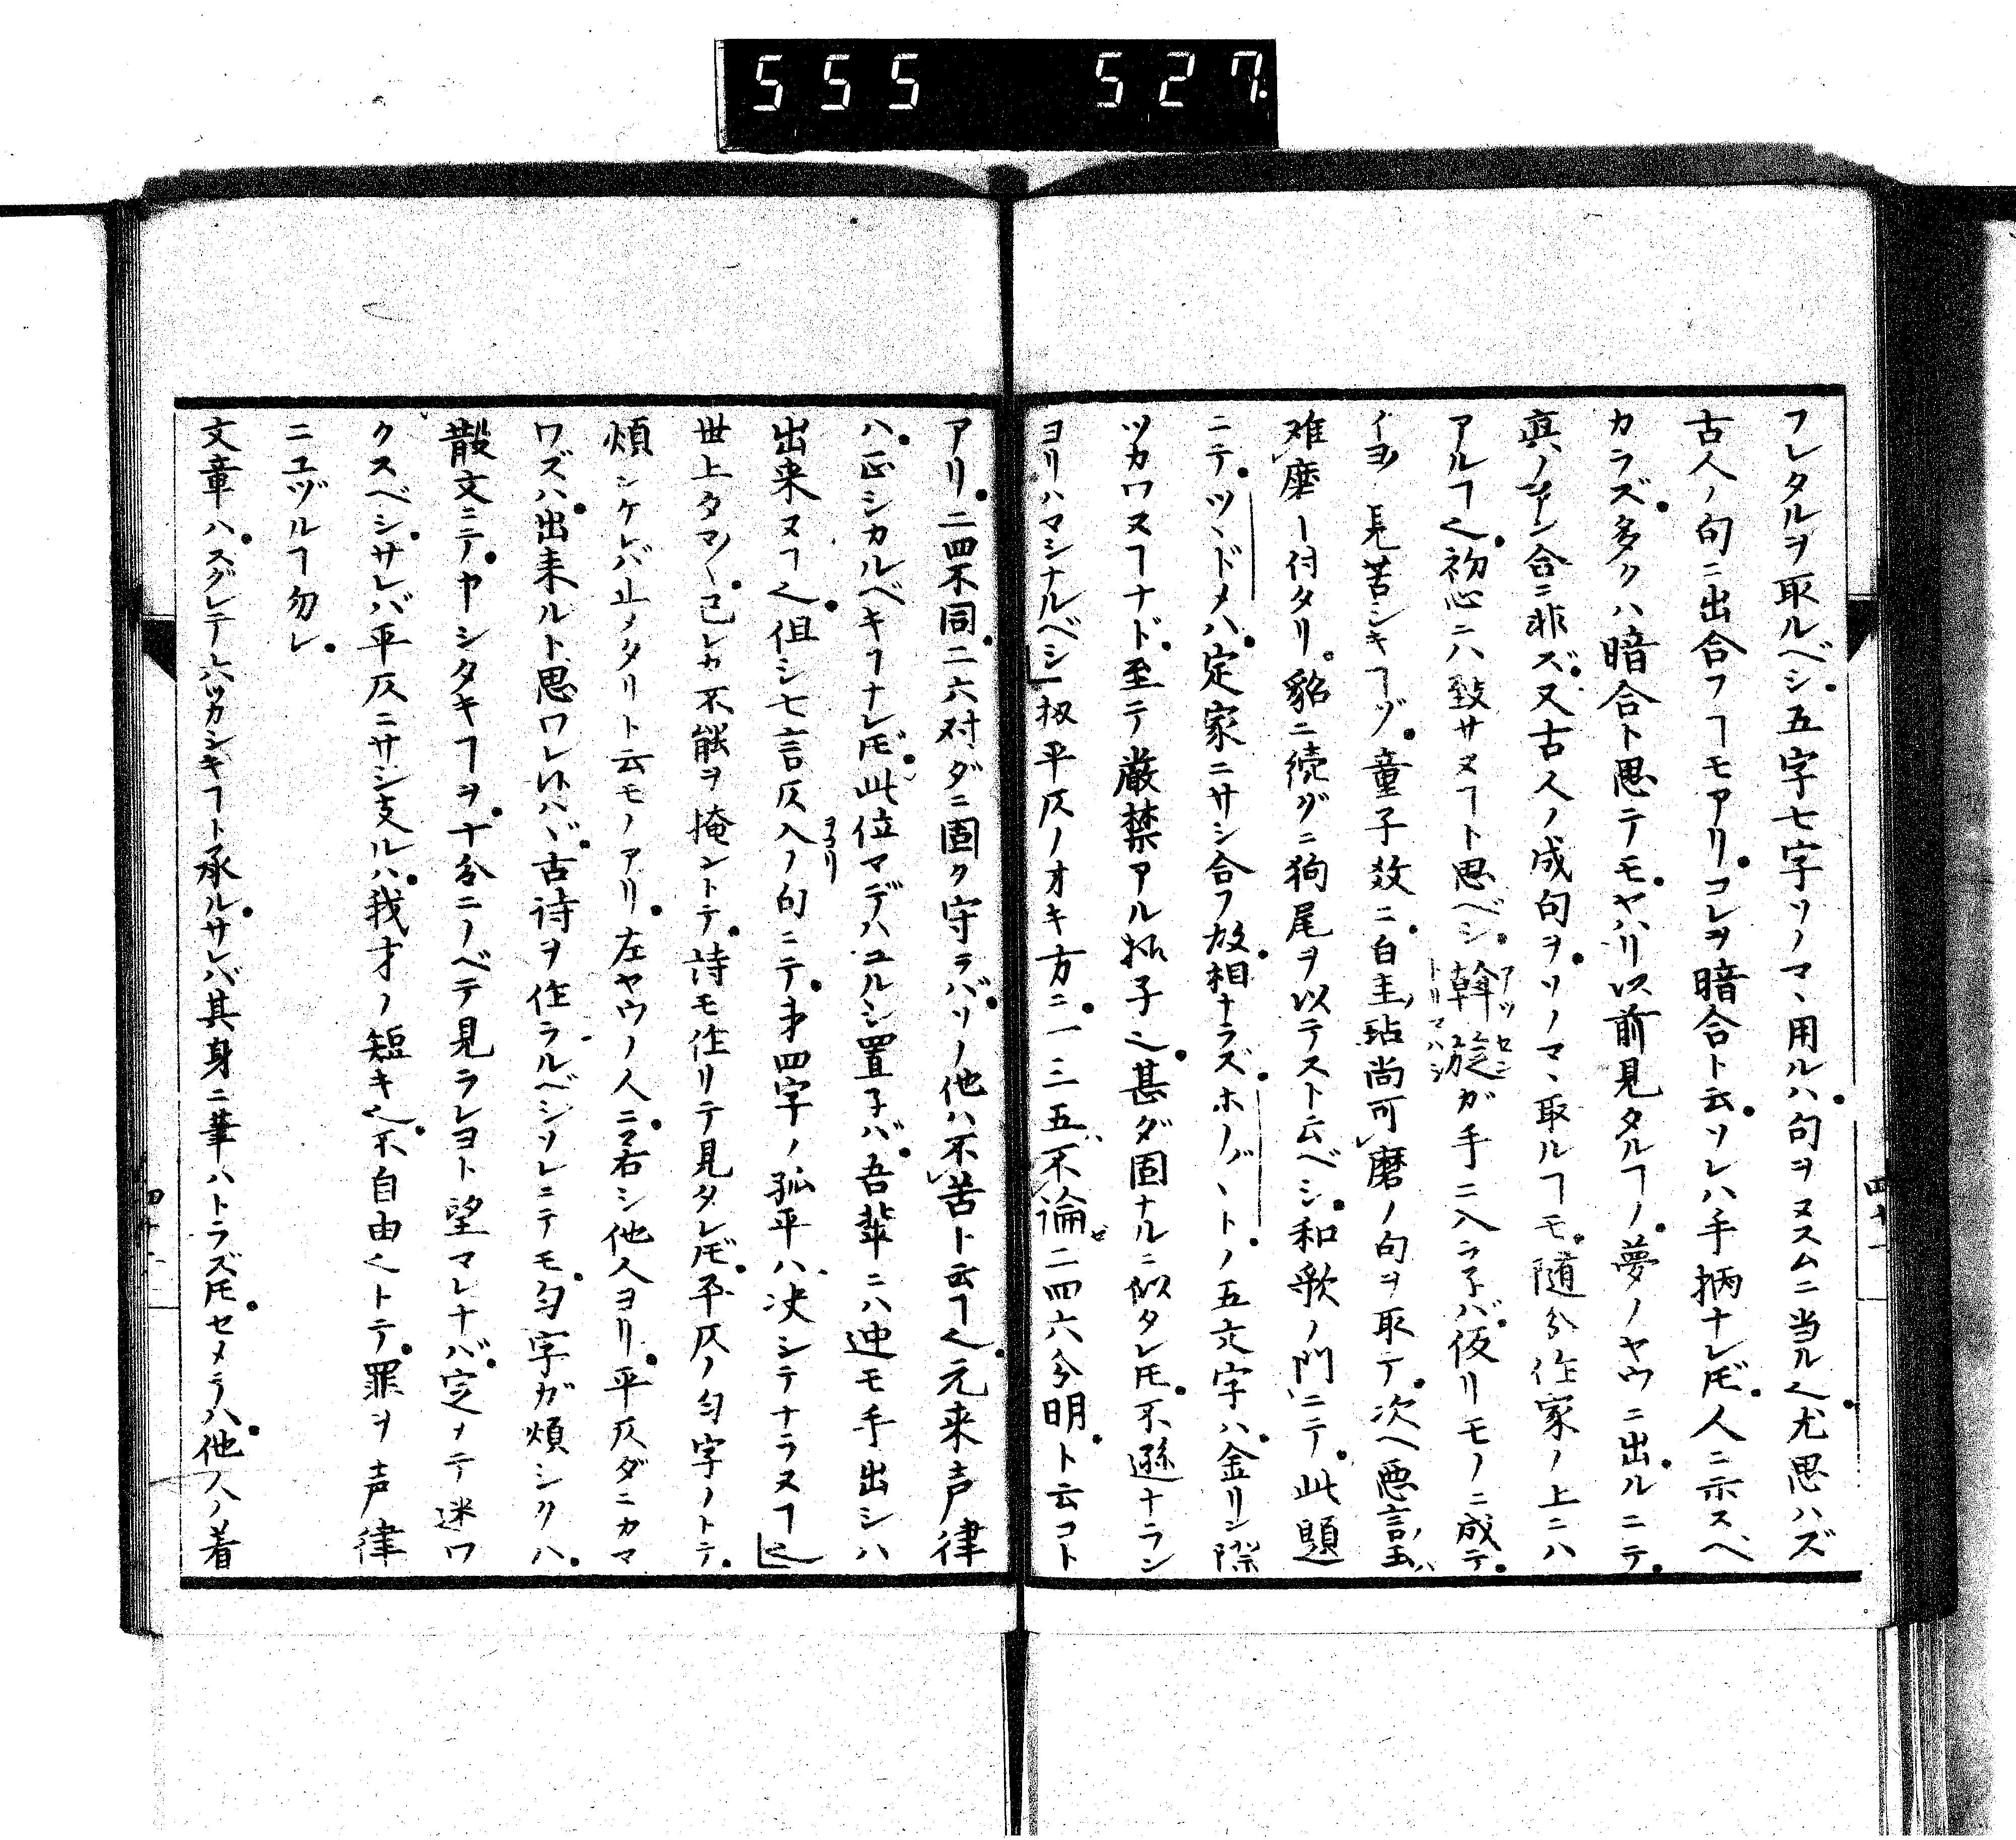 555 527
フレタルヲ取ルベシ五字七字ソノマヽ用ルハ句ヲヌスムニ当ルヘ尤思ハズ
古人ノ句ニ出合フヿモアリコレヲ暗合ト云ソレハ手柄ナレ𪜈人ニ示スベ
カラズ多クハ暗合ト思テモヤハリ以前見タルヿノ夢ノヤウニ出ルニテ
真ノ合ニ非ズ又古人ノ成句ヲソノマヽ取ルヿモ随分作家ノ上ニハ
アルヿ也初心ニハ致サヌヿト思ベシ斡旋ガ手ニ入ラネバ仮リモノニ成テ
アツセン
トリマハシ
イヨ〳〵見苦シキヿゾ童子教ニ白圭玷尚可磨ノ句ヲ取テ次ヘ悪言玉
难磨ト付タリ貂ニ続グニ狗尾ヲ以テスト云ベシ和歌ノ門ニテ此題
ニテツヽドメハ定家ニサシ合フ故相ナラズホノ〴〵トノ五文字ハ金リン際
ツカワヌヿナド至テ厳禁アル拆子也甚ダ固ナルニ似タレ𪜈不遜ナラン
ヨリハマシナルベシ扨平仄ノオキ方ニ一三五不論二四六分明ト云コト
アリ二四不同二六対ダニ固ク守ラバソノ他ハ不苦ト云ヿ也元来声律
ハ正シカルベキヿナレ𪜈此位マデハユルシ置ネバ吾輩ニハ迚モ手出シハ
出来ヌヿ也但シ七言仄入ノ句ニテ第四字ノ孤平ハ决シテナラヌヿ也
ヲコリ
世上タマ〳〵己レカ不能ヲ掩ントテ詩モ作リテ見タレ𪜈平仄ノ匀字ノトテ
煩シケレバ止ノタリト云モノアリ左ヤウノ人ニ若シ他人ヨリ平仄ダニカマ
ワズハ出来ルト思ワレハヾ古詩ヲ作ラルベシソレニテモ匀字ガ煩シクハ
散文ニテヤシタキヿヲ十分ニノベテ見ラレヨト望マレナバ定メテ迷ワ
クスベシサレバ平仄ニサシ支ルハ我才ノ短キ也不自由也トテ罪ヲ声律
ニユヅルヿ勿レ
文章ハスグレテ六ツカシキヿト承ルサレバ其身ニ筆ハトラズ𪜈セメテハ他人ノ着
四十一
四十二